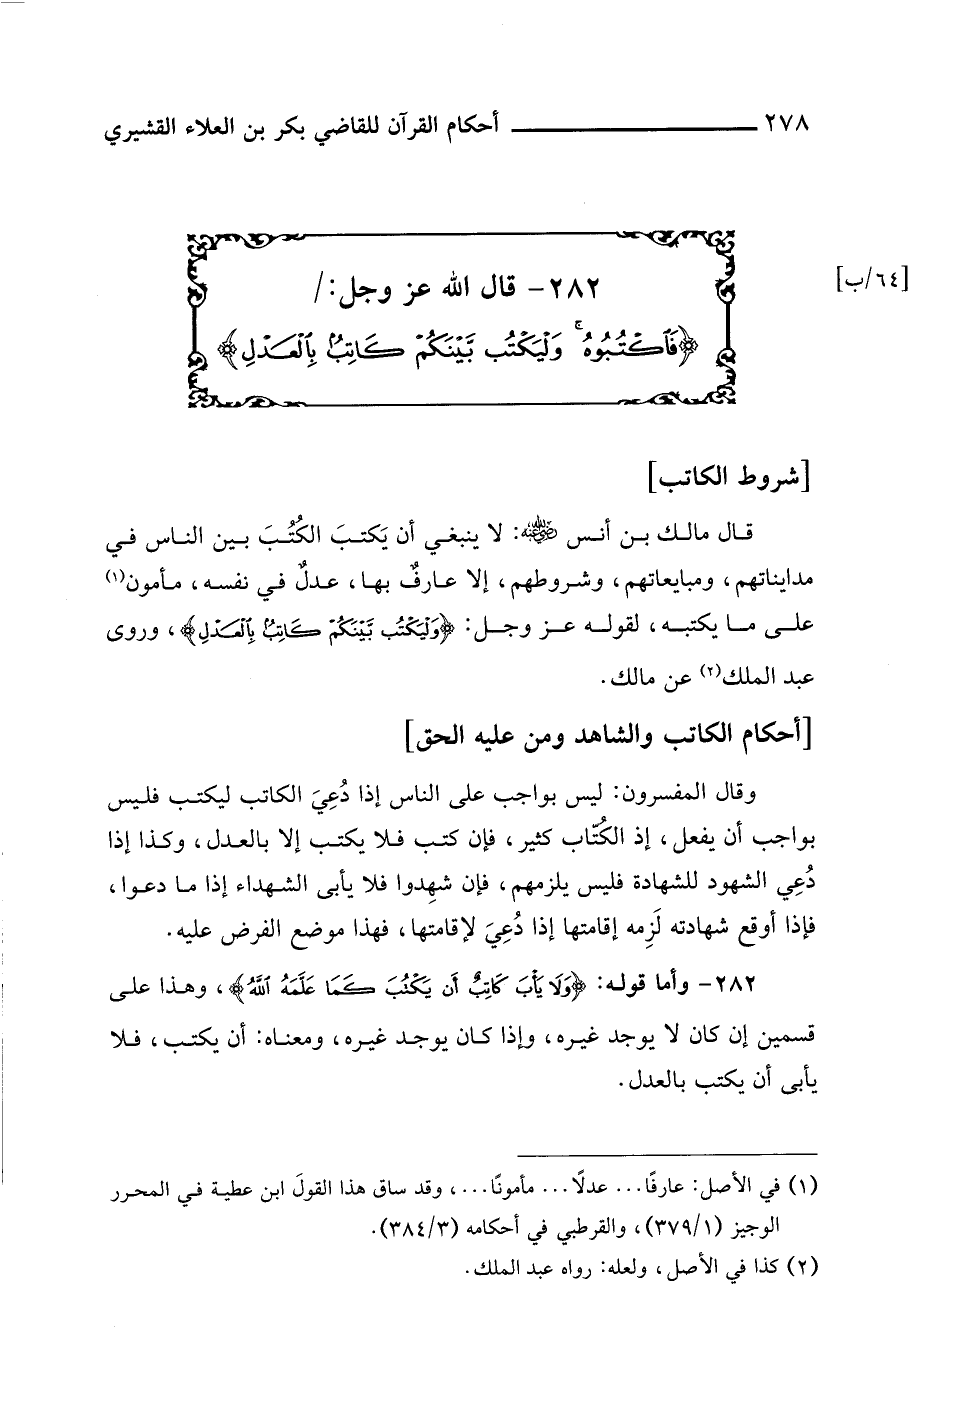 ٢٧٨ أحكام القرآن للقاضي بكر بن العلاء القشيري
[٦٤/ب]
٢٨٢- قال الله عز وجل: /
﴿فَٱكْتُبُوهُ ۚ وَلْيَكْتُب بَّيْنَكُمْ كَاتِبٌۢ بِٱلْعَدْلِ﴾
[شروط الكاتب]
قال مالك بن أنس رضي الله عنه: لا ينبغي أن يَكتبَ الكُتُبَ بين الناس في
مدايناتهم، ومبايعاتهم، وشروطهم، إلا عارفٌ بها، عدلٌ في نفسه، مأمون(١)
على ما يكتبه، لقوله عز وجل: ﴿وَلْيَكْتُب بَّيْنَكُمْ كَاتِبٌۢ بِٱلْعَدْلِ﴾، وروى
عبد الملك(٢) عن مالك.
[أحكام الكاتب والشاهد ومن عليه الحق]
وقال المفسرون: ليس بواجب على الناس إذا دُعِيَ الكاتب ليكتب فليس
بواجب أن يفعل، إذ الكُتّاب كثير، فإن كتب فلا يكتب إلا بالعدل، وكذا إذا
دُعِي الشهود للشهادة فليس يلزمهم، فإن شهِدوا فلا يأبى الشهداء إذا ما دعوا،
فإذا أوقع شهادته لَزِمه إقامتها إذا دُعِيَ لإقامتها، فهذا موضع الفرض عليه.
٢٨٢- وأما قوله: ﴿وَلَا يَأْبَ كَاتِبٌ أَن يَكْتُبَ كَمَا عَلَّمَهُ ٱللَّهُ﴾، وهذا على
قسمين إن كان لا يوجد غيره، وإذا كان يوجد غيره، ومعناه: أن يكتب، فلا
يأبى أن يكتب بالعدل.
(١) في الأصل: عارفًا... عدلًا... مأمونًا...، وقد ساق هذا القولَ ابن عطية في المحرر
الوجيز (٣٧٩/١)، والقرطبي في أحكامه (٣٨٤/٣).
(٢) كذا في الأصل، ولعله: رواه عبد الملك.